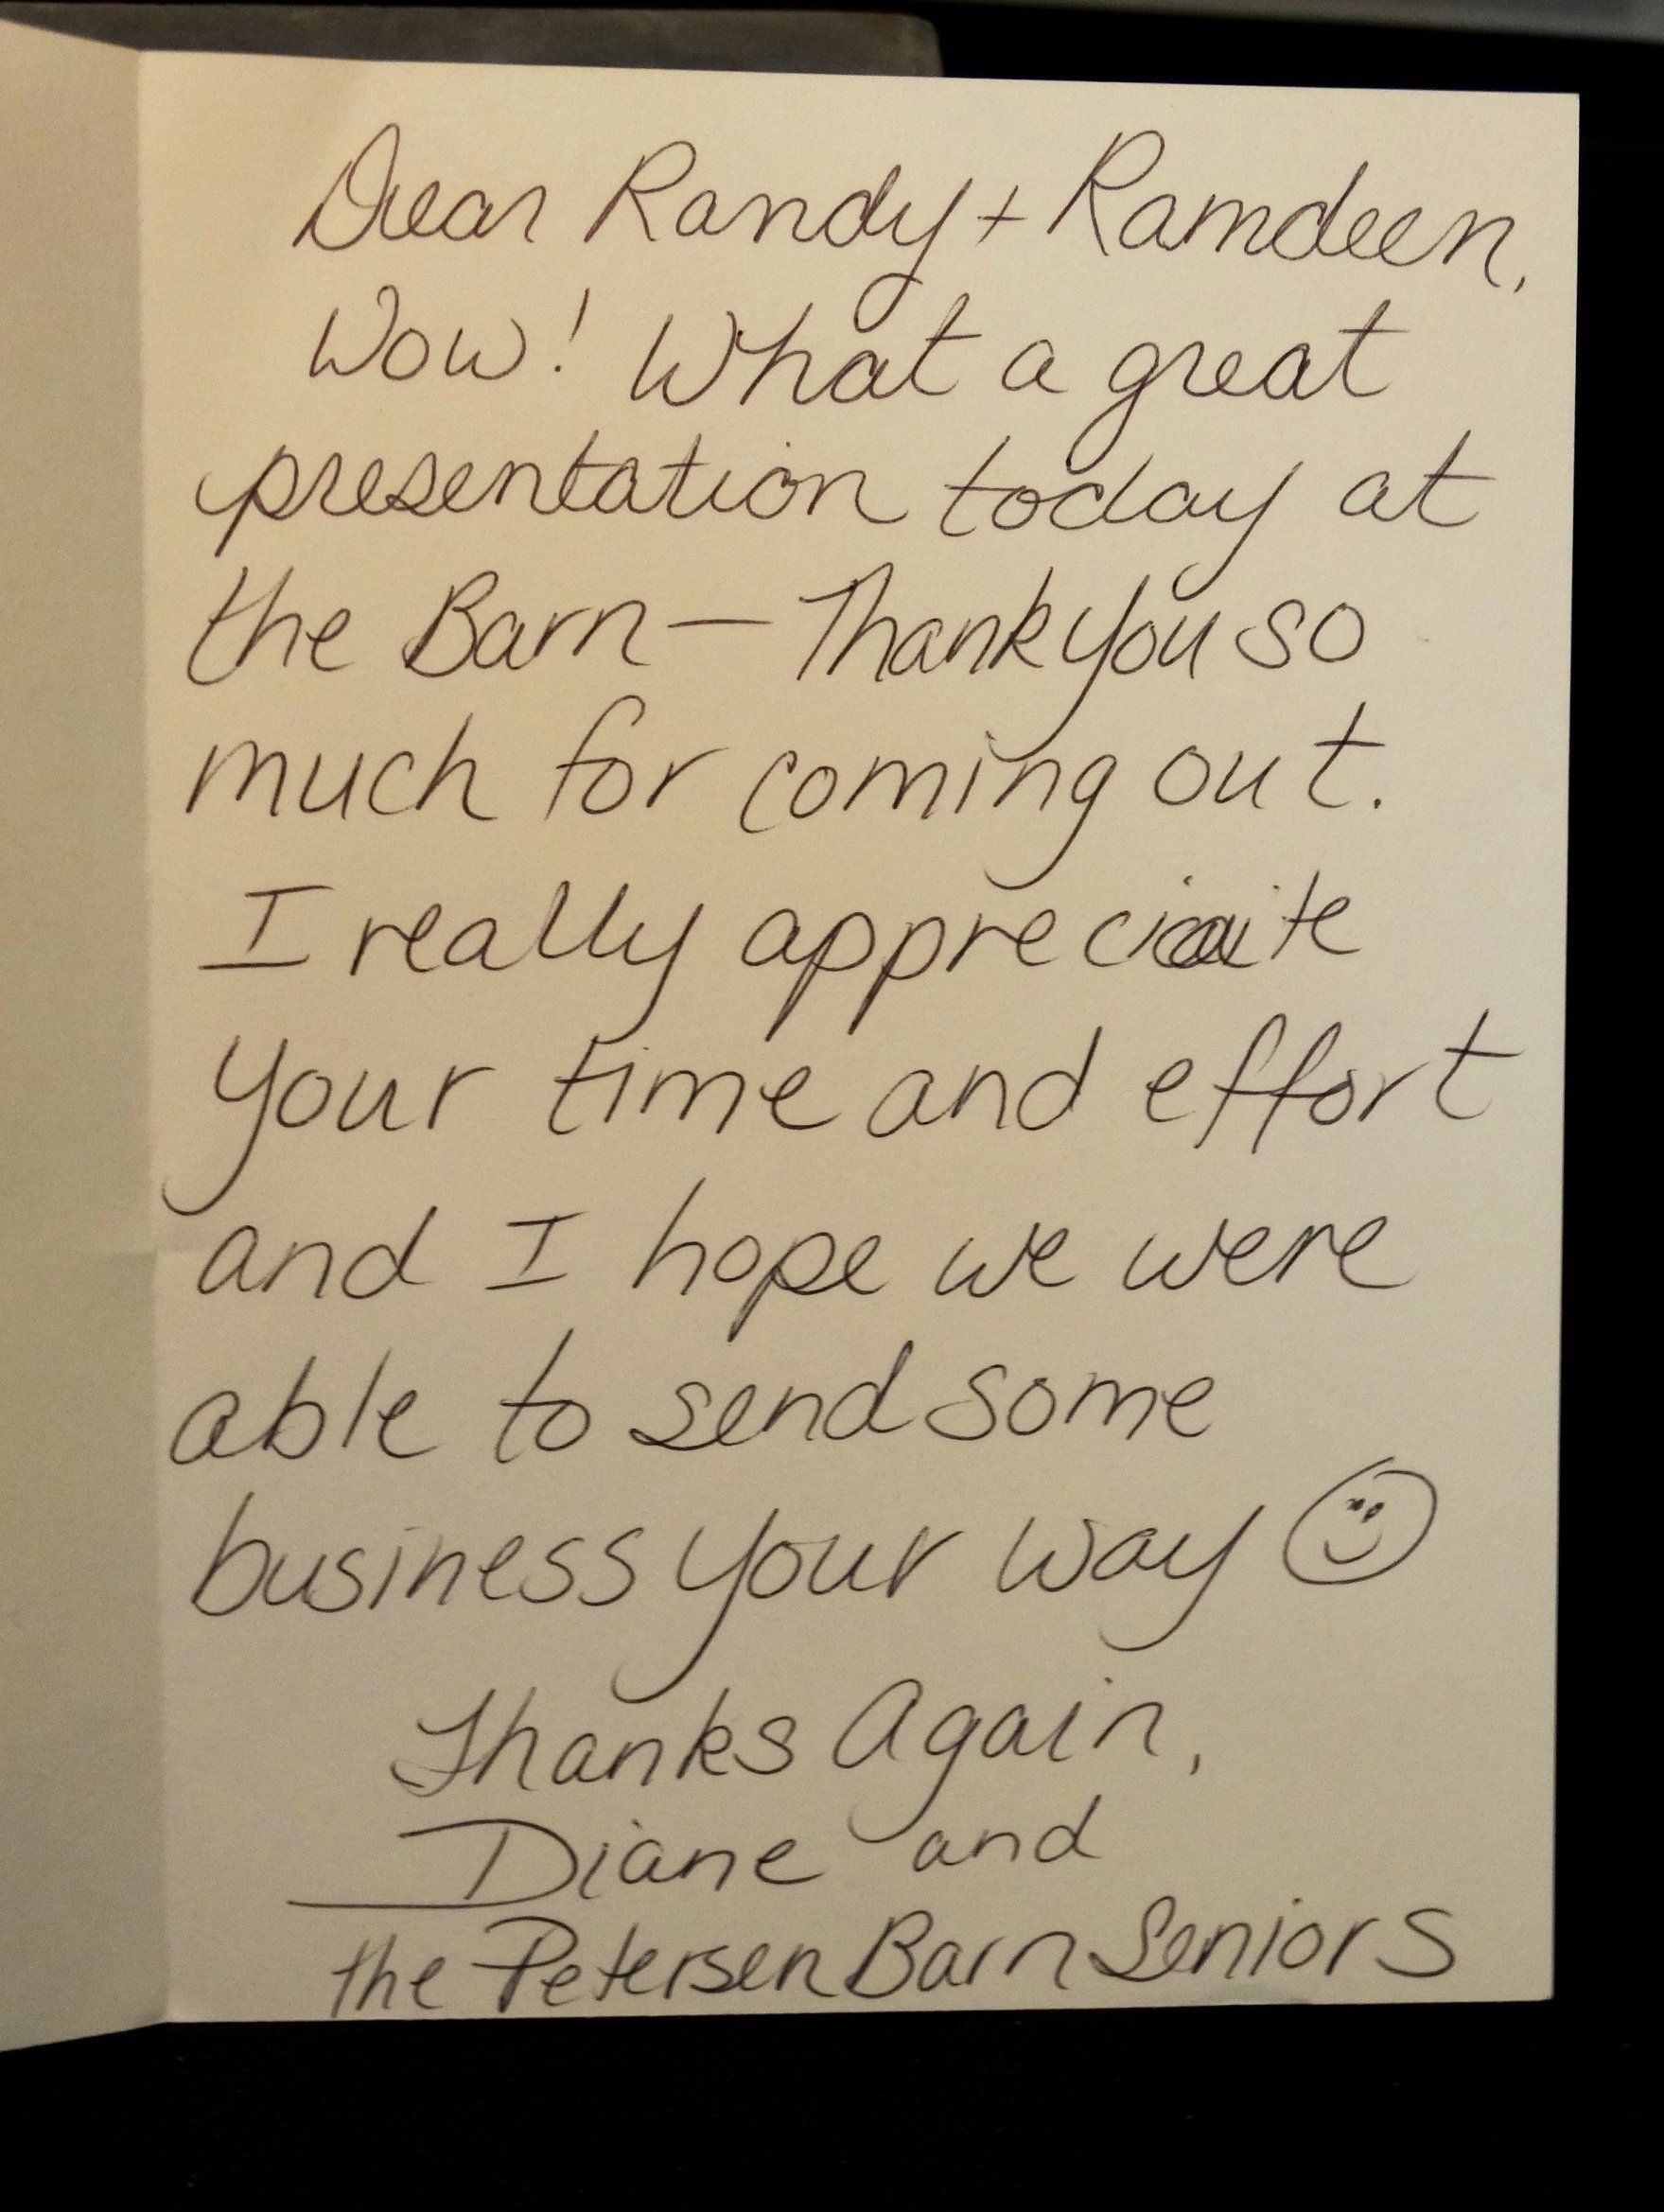 Dear Randy + Ramdeen,
Wow! What a great
presentation today at
the Barn — Thank you so
much for coming out.
I really appreciate
your time and effort
and I hope we were
able to send some
business your way ☺
Thanks Again,
Diane and
the Petersen Barn Seniors